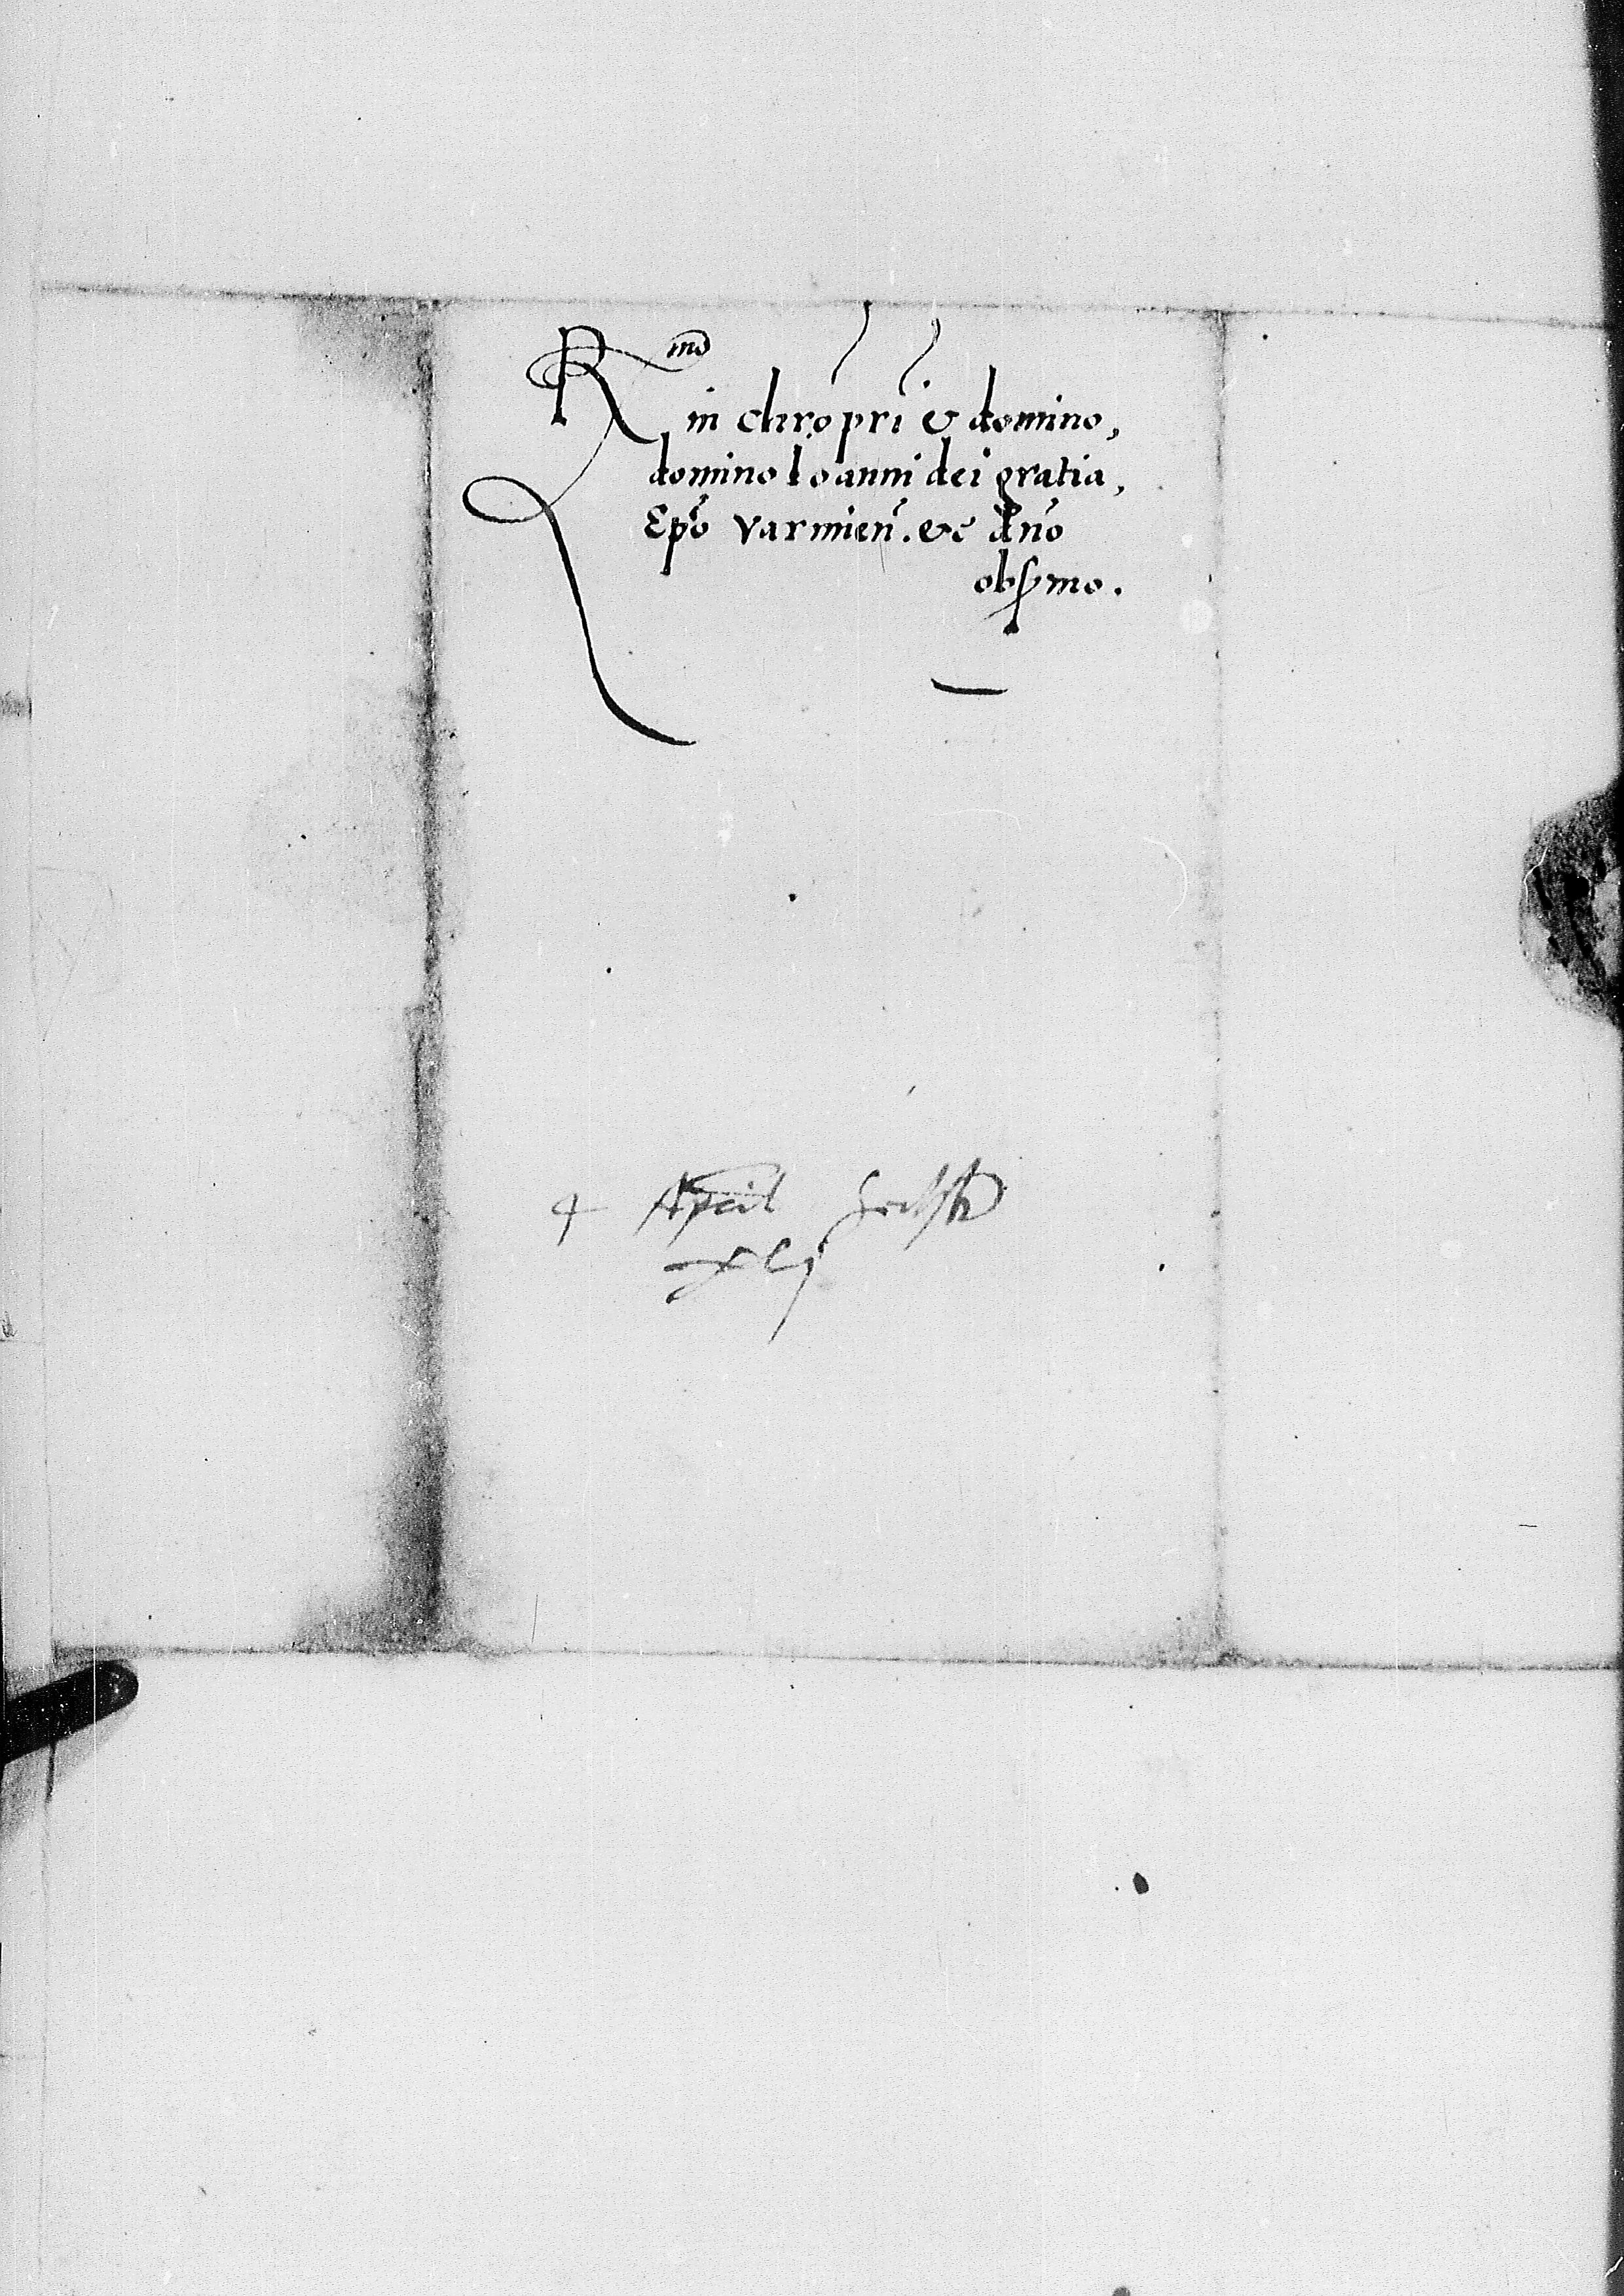 Rmo
in chro pri & domino,
domino Ioanni dei gratia,
Epo varmien. &c dno
obsmo.
4 April
xlj